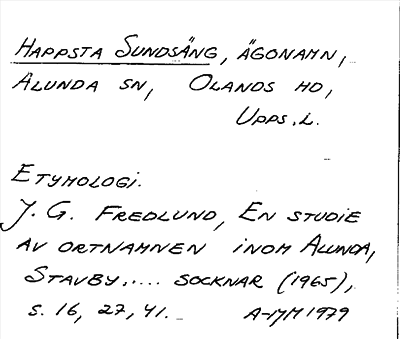 HAPPSTA SUNDSÄNG, ÄGONAMN,
ALUNDA SN, OLANDS HD,
UPPS.L.
ETYMOLOGI.
J. G. FREDLUND, EN STUDIE
AV ORTNAMNEN INOM ALUNDA,
STAVBY..... SOCKNAR (1965),
S. 16, 27, 41. A-MM 1979